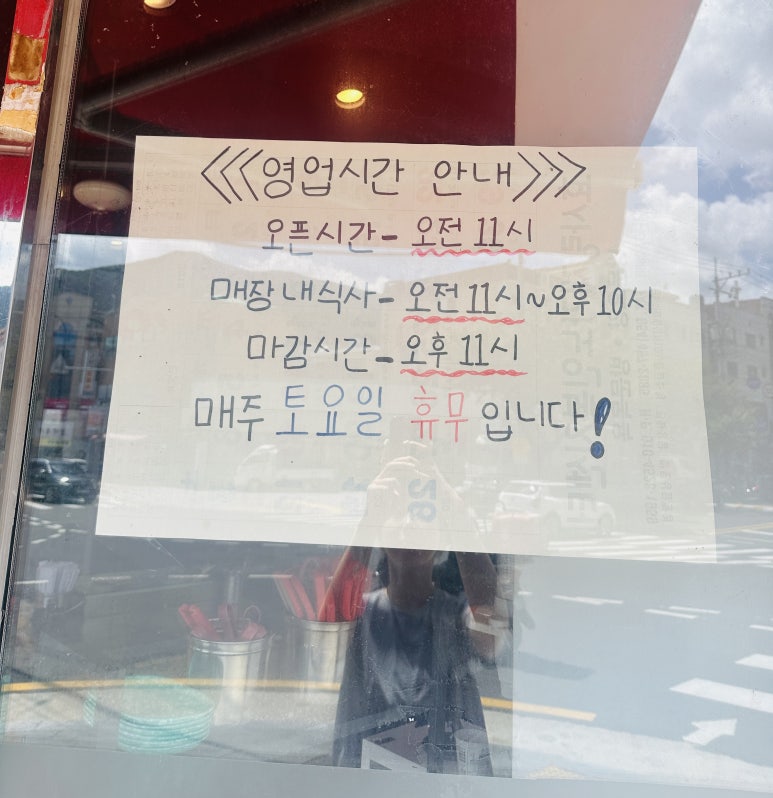 <<<영업시간 안내>>>
오픈시간- 오전 11시
매장 내 식사- 오전 11시~오후 10시
마감시간- 오후 11시
매주 토요일 휴무 입니다!
26